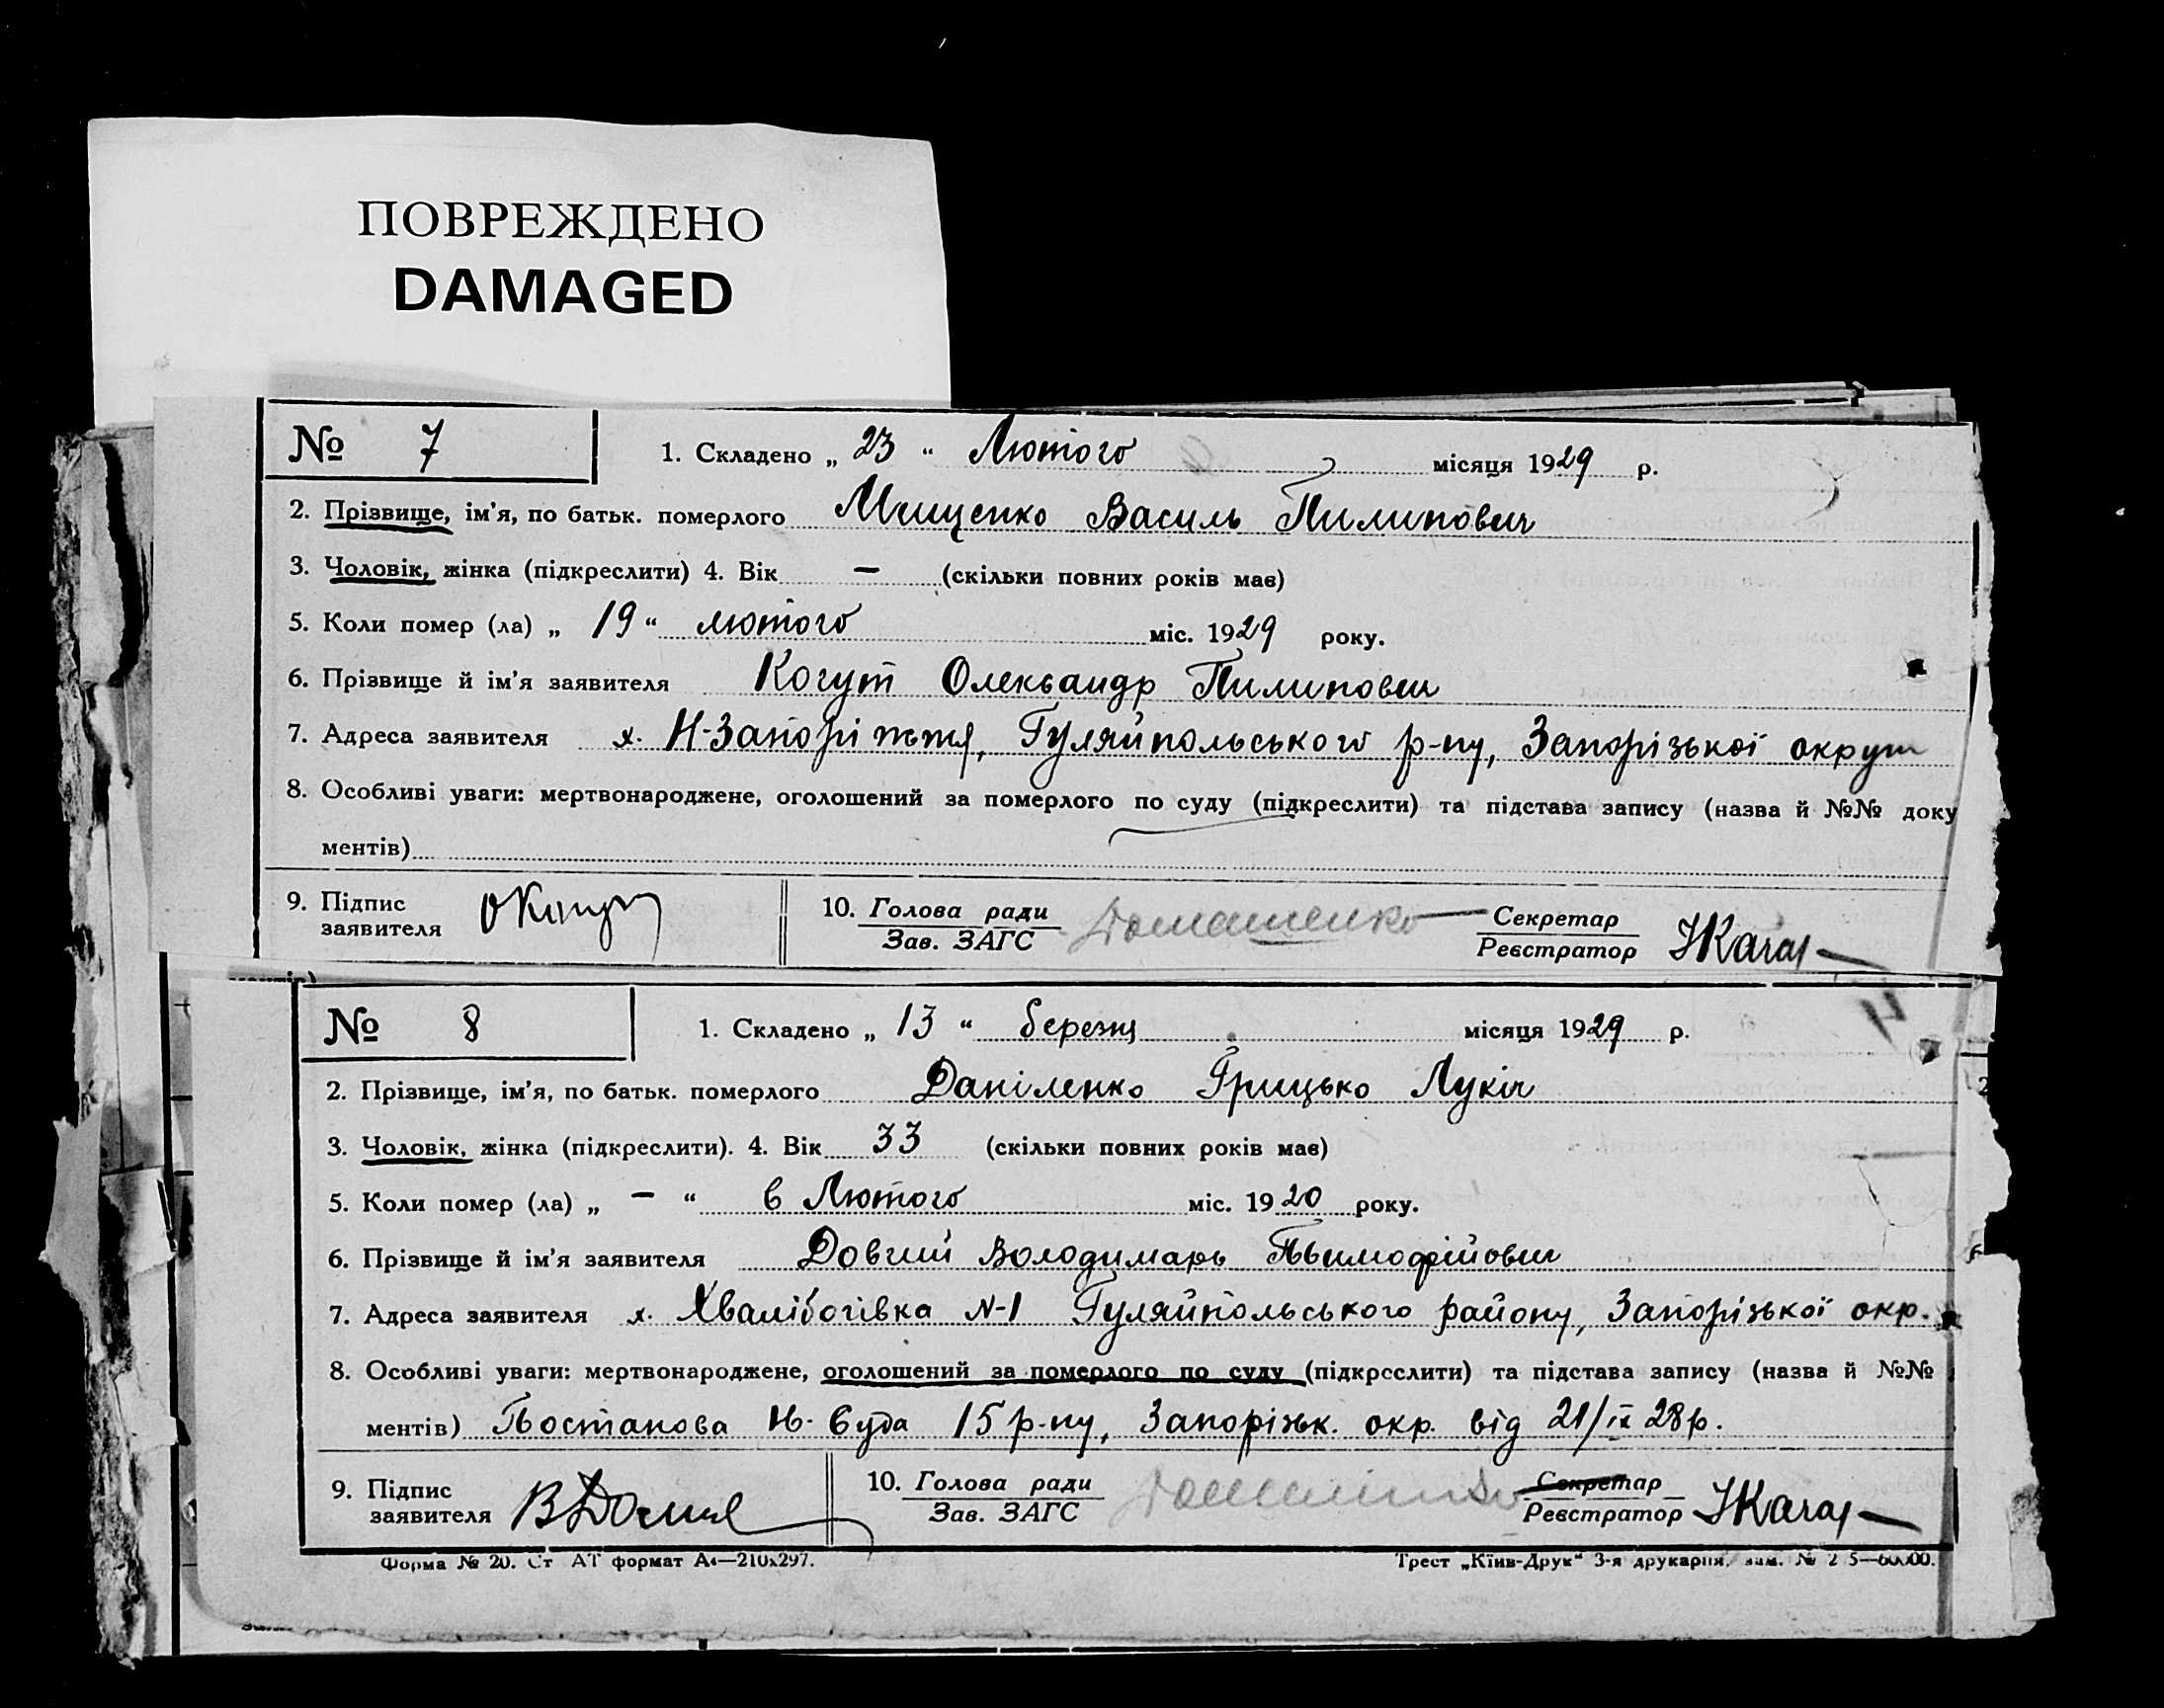 ПОВРЕЖДЕНО
DAMAGED
№ 7
1. Складено „ 23 “ Лютого місяця 1929 р.
2. Прізвище, ім'я, по батьк. померлого Мищенко Василь Пилипович
3. Чоловік, жінка (підкреслити) 4. Вік — (скільки повних років має)
5. Коли помер (ла) „ 19 “ лютого міс. 1929 року.
6. Прізвище й ім'я заявителя Когут Олександр Пилипович
7. Адреса заявителя х. Н-Запоріжжя, Гуляйпольського р-ну, Запорізької округи
8. Особливі уваги: мертвонароджене, оголошений за померлого по суду (підкреслити) та підстава запису (назва й №№ доку
ментів)
9. Підпис заявителя
10. Голова ради Зав. ЗАГС Домашенко Секретар Реєстратор
№ 8
1. Складено „ 13 “ березня місяця 1929 р.
2. Прізвище, ім'я, по батьк. померлого Даніленко Грицько Лукіч
3. Чоловік, жінка (підкреслити). 4. Вік 33 (скільки повних років має)
5. Коли помер (ла) „ — “ 6 Лютого міс. 1920 року.
6. Прізвище й ім'я заявителя Довгий Володимарь
7. Адреса заявителя х. Хвалібогівка N-1 Гуляйпольського району, Запорізької окр.
8. Особливі уваги: мертвонароджене, оголошений за померлого по суду (підкреслити) та підстава запису (назва й №№
ментів) Постанова Н. Суда 15 р-ну, Запорізьк. окр. від 21/IX 28 р.
9. Підпис заявителя
10. Голова ради Зав. ЗАГС Секретар Реєстратор
Форма № 20. Ст АТ формат А4—210х297.
Трест „Київ-Друк“ 3-я друкарня.